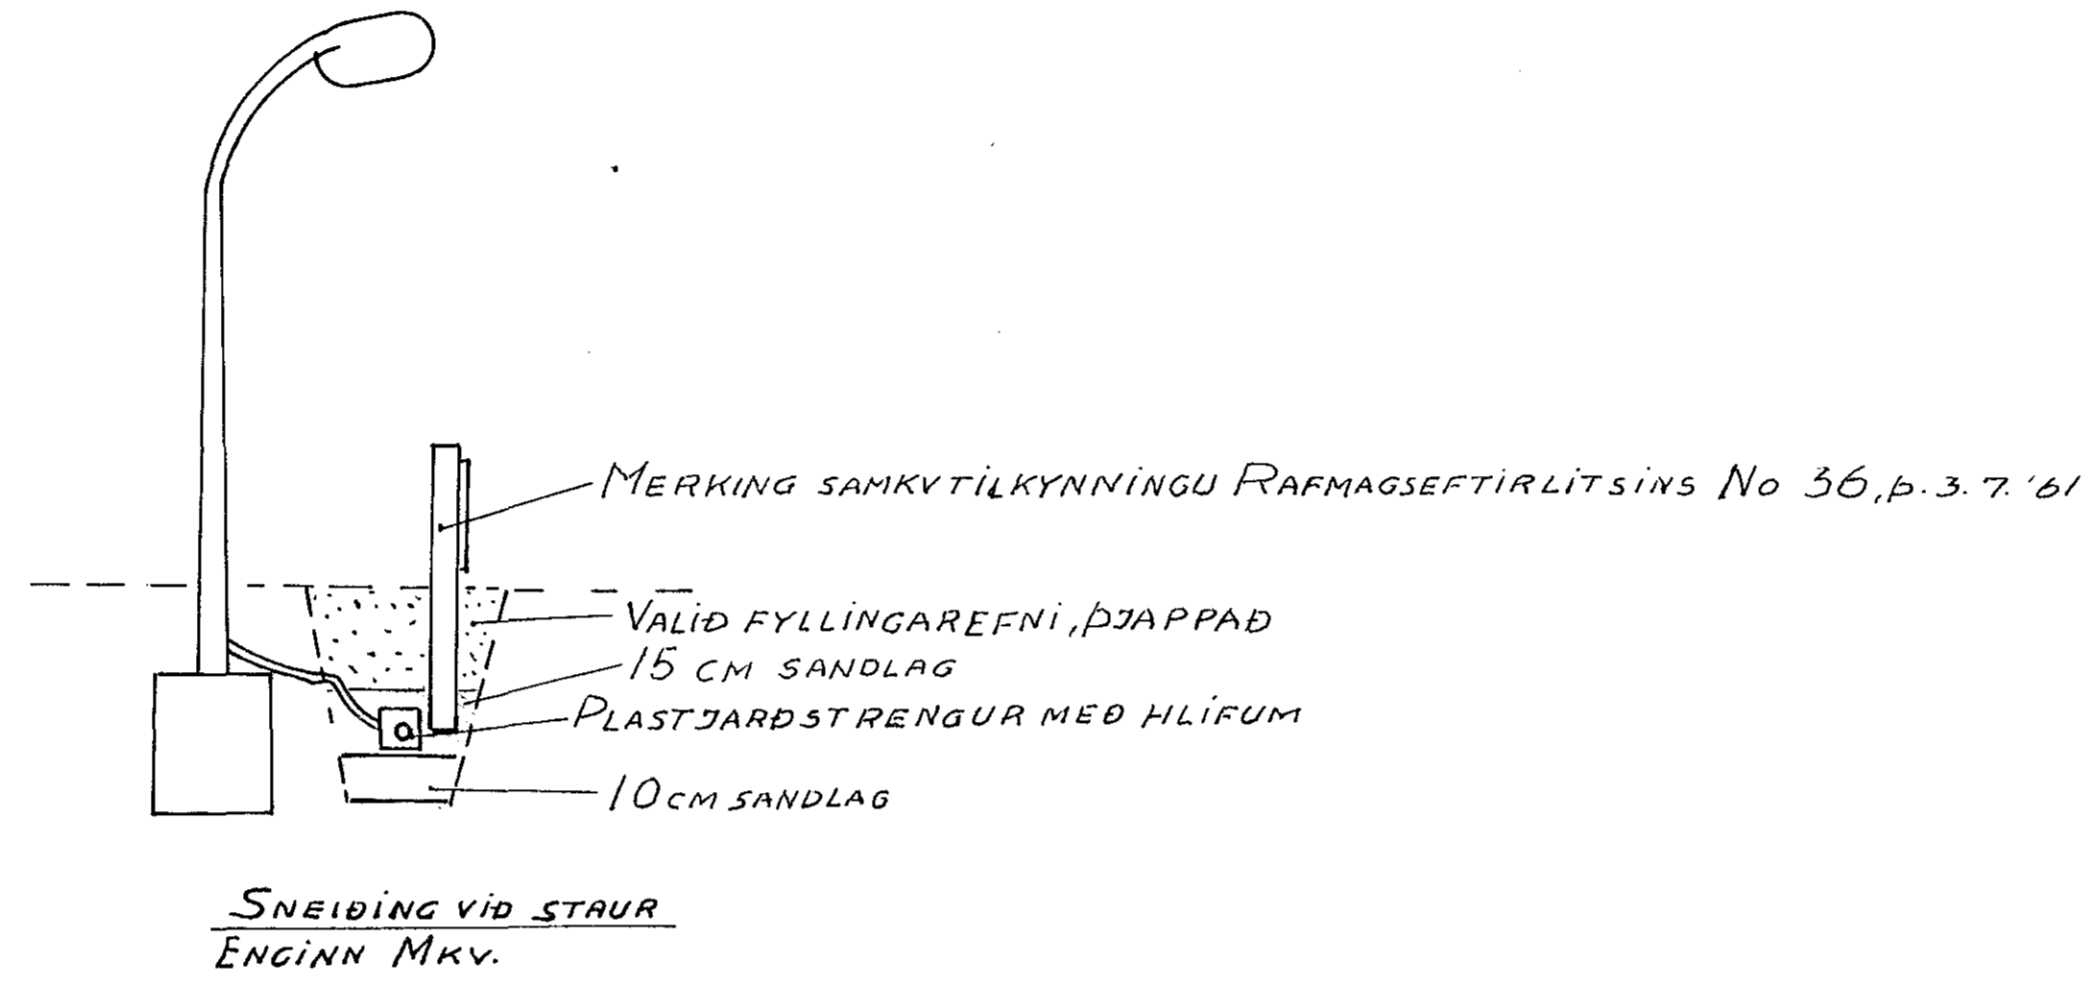 MERKING SAMKV TiLKYNNiNGU RAFMAGSEFTiRLiTSiNS No 36, Þ. 3. 7. '61
VALiÐ FYLLiNGAREFNi, ÞJAPPAÐ
15 CM SANDLAG
PLASTJARÐSTRENGUR MEÐ HLiFUM
10 CM SANDLAG
SNEIÐiNG ViÐ STAUR
ENGiNN MKV.